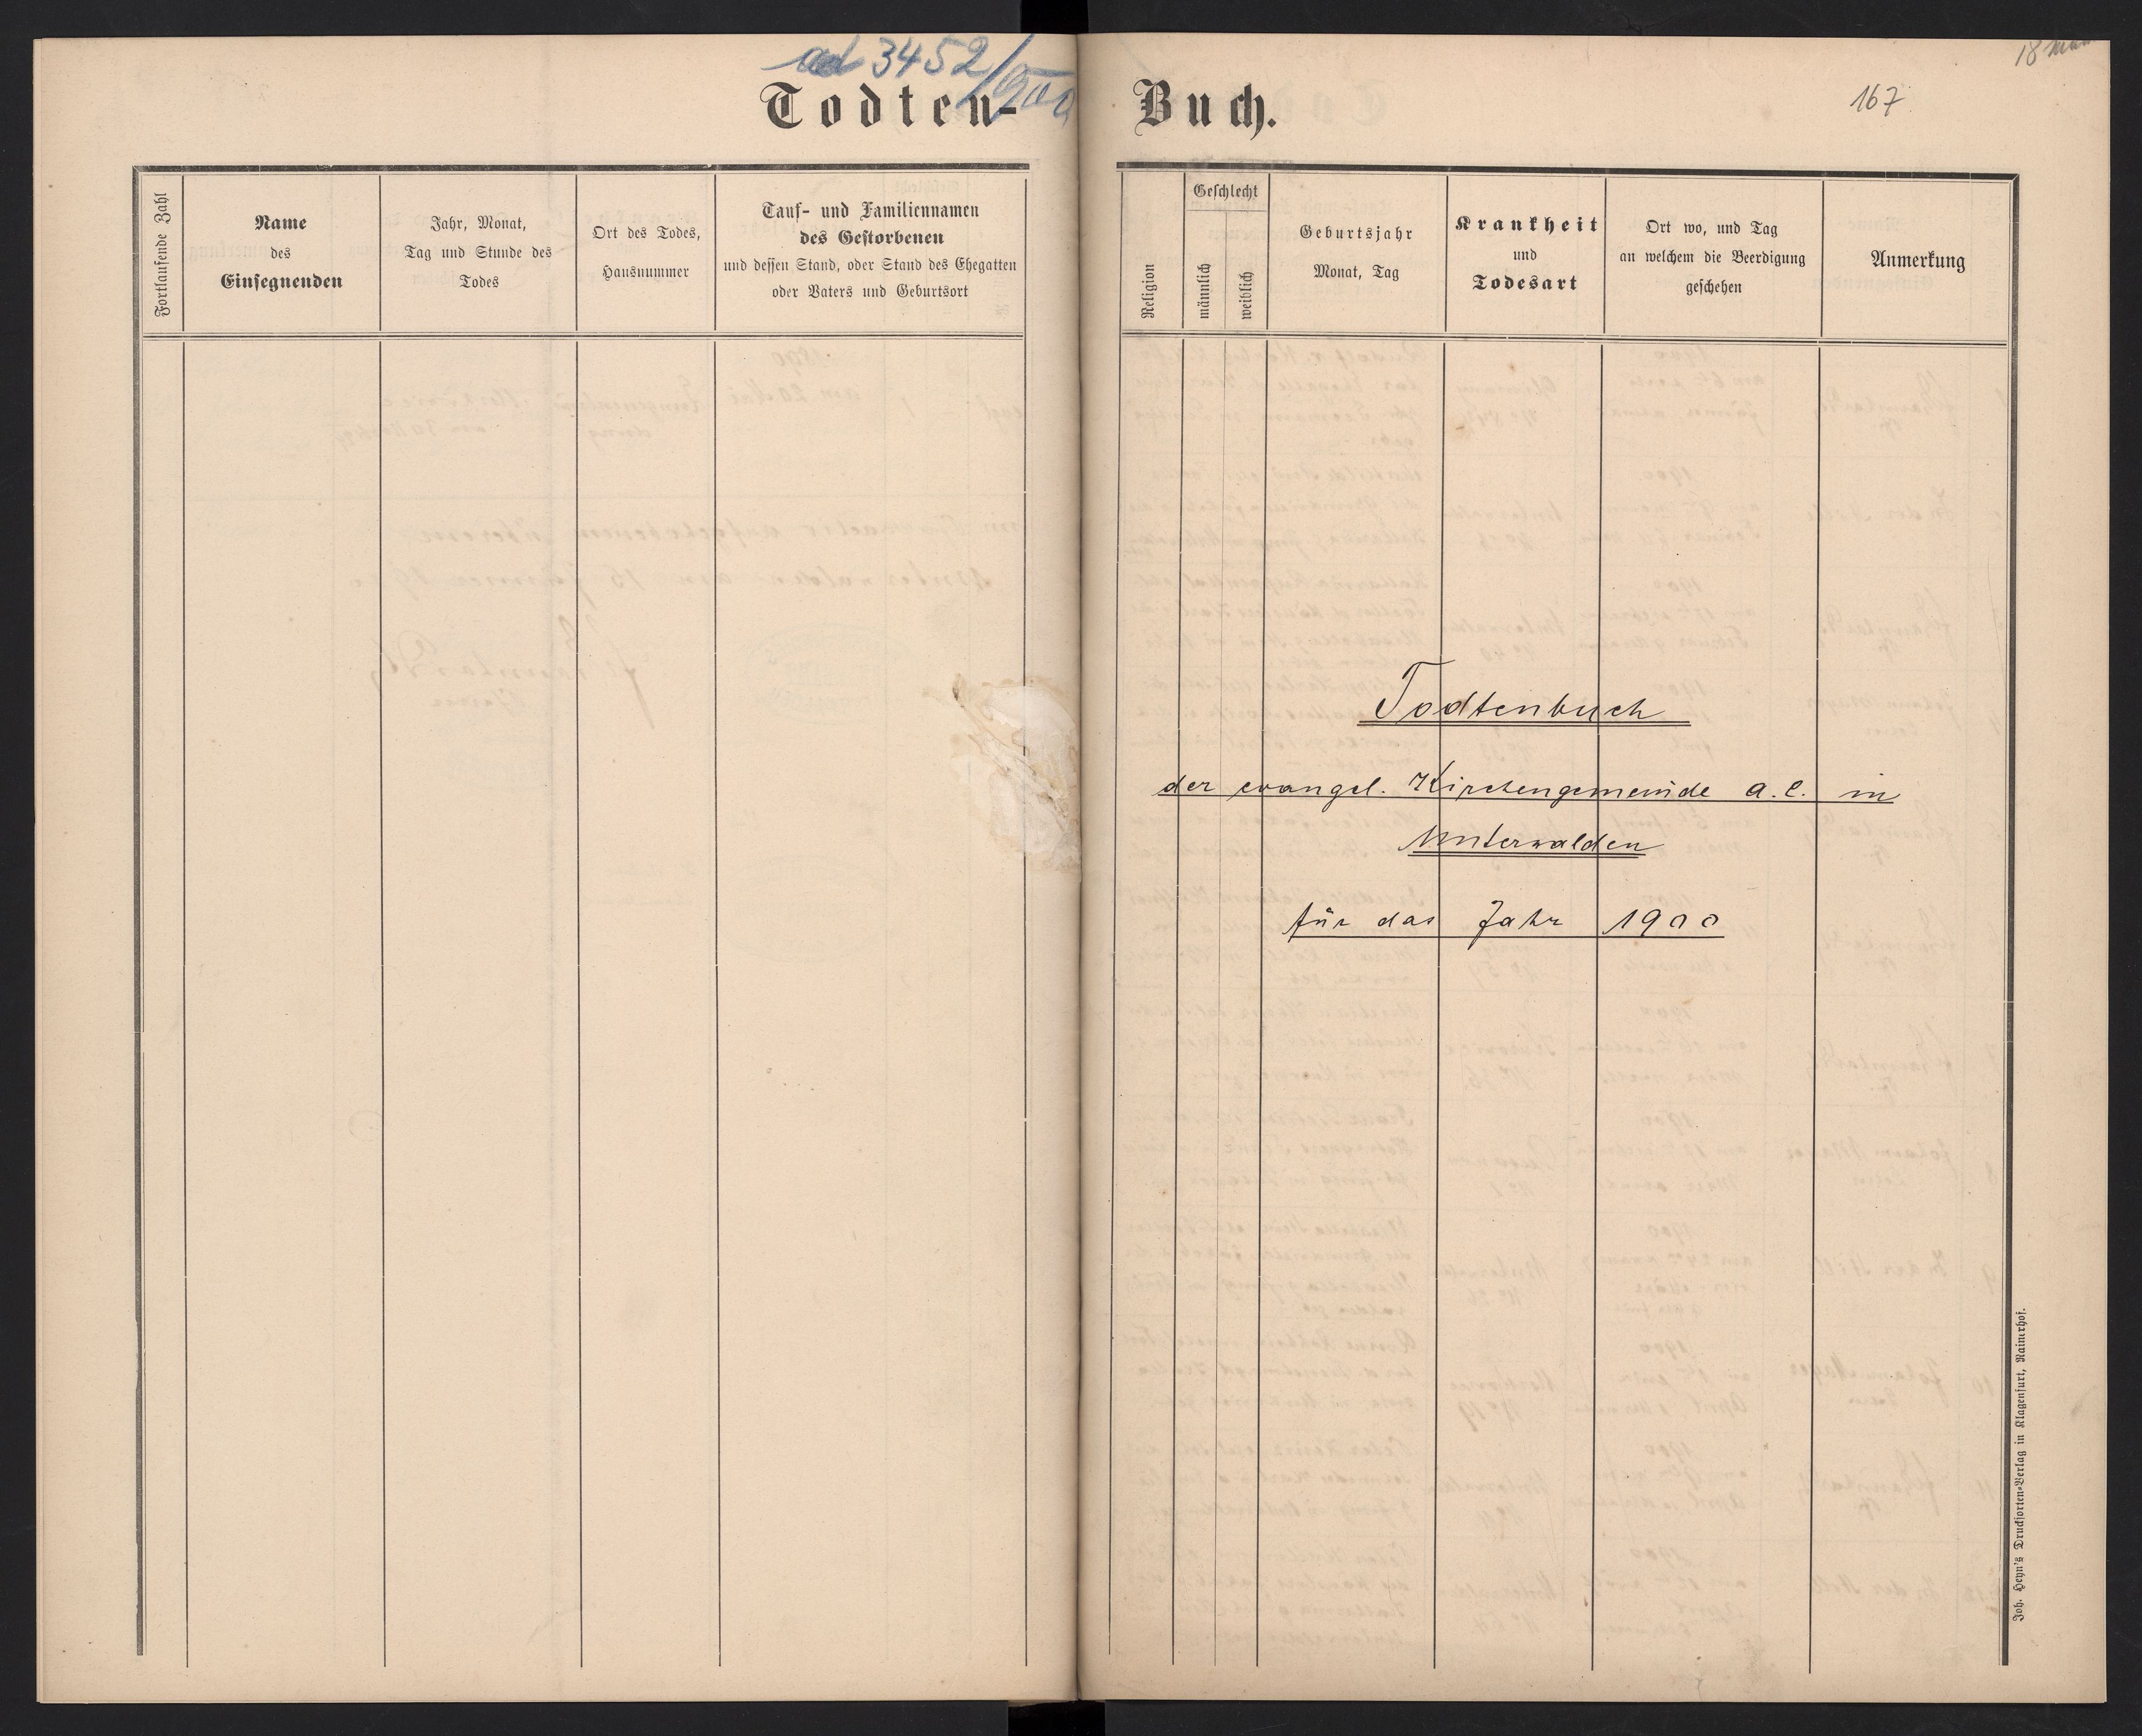 ad 3452/900
Todten-
Buch.
167
Fortlaufende Zahl
Name
des
Einsegnenden
Jahr, Monat,
Tag und Stunde des
Todes
Ort des Todes,
Hausnummer
Tauf- und Familiennamen
des Gestorbenen
und dessen Stand, oder Stand des Ehegatten
oder Vaters und Geburtsort
Religion
Geschlecht
männlich
weiblich
Geburtsjahr
Monat, Tag
Krankheit
und
Todesart
Ort wo, und Tag
an welchem die Beerdigung
geschehen
Anmerkung
Todtenbuch
der evangel. Kirchengemeinde A.C. in
Unterwalden
für das Jahr 1900
Joh. Heyn's Drucksorten-Verlag in Klagenfurt, Rainerhof.